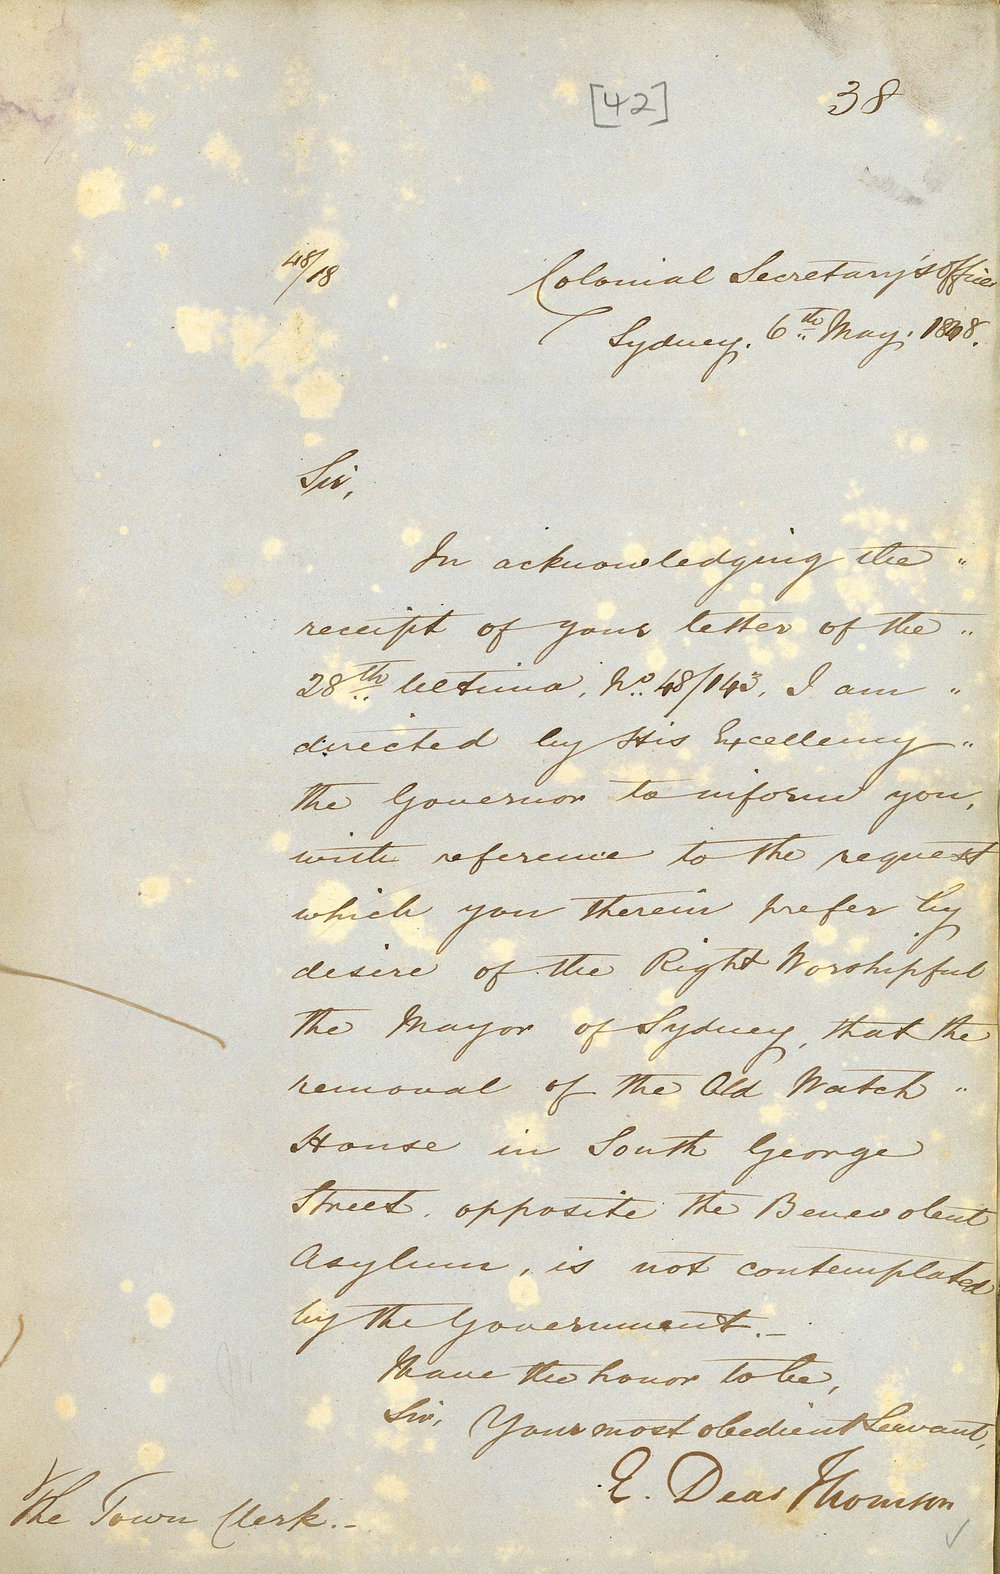 [42]
38
48/18
Colonial Secretary's Office
Sydney. 6th May. 1848.
Sir,
In acknowledging the "
receipt of your letter of the "
28th Ultimo, No. 48/143, I am "
directed by His Excellency "
the Governor to inform you,
with reference to the request
which you therein prefer by
desire of the Right Worshipful
the Mayor of Sydney, that the
removal of the Old Watch "
House in South George
Street, opposite the Benevolent
Asylum, is not contemplated
by the Government._
I have the honor to be,
Sir,
Your most obedient Servant,
E. Deas Thomson
The Town Clerk._